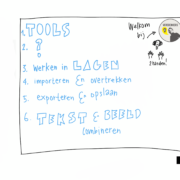 1. TOOLS
2. ?
3. Werken in LAGEN
4. importeren En overtrekken
5. exporteren & opslaan
6. TEKST & BEELD
combineren
Welkom
bij